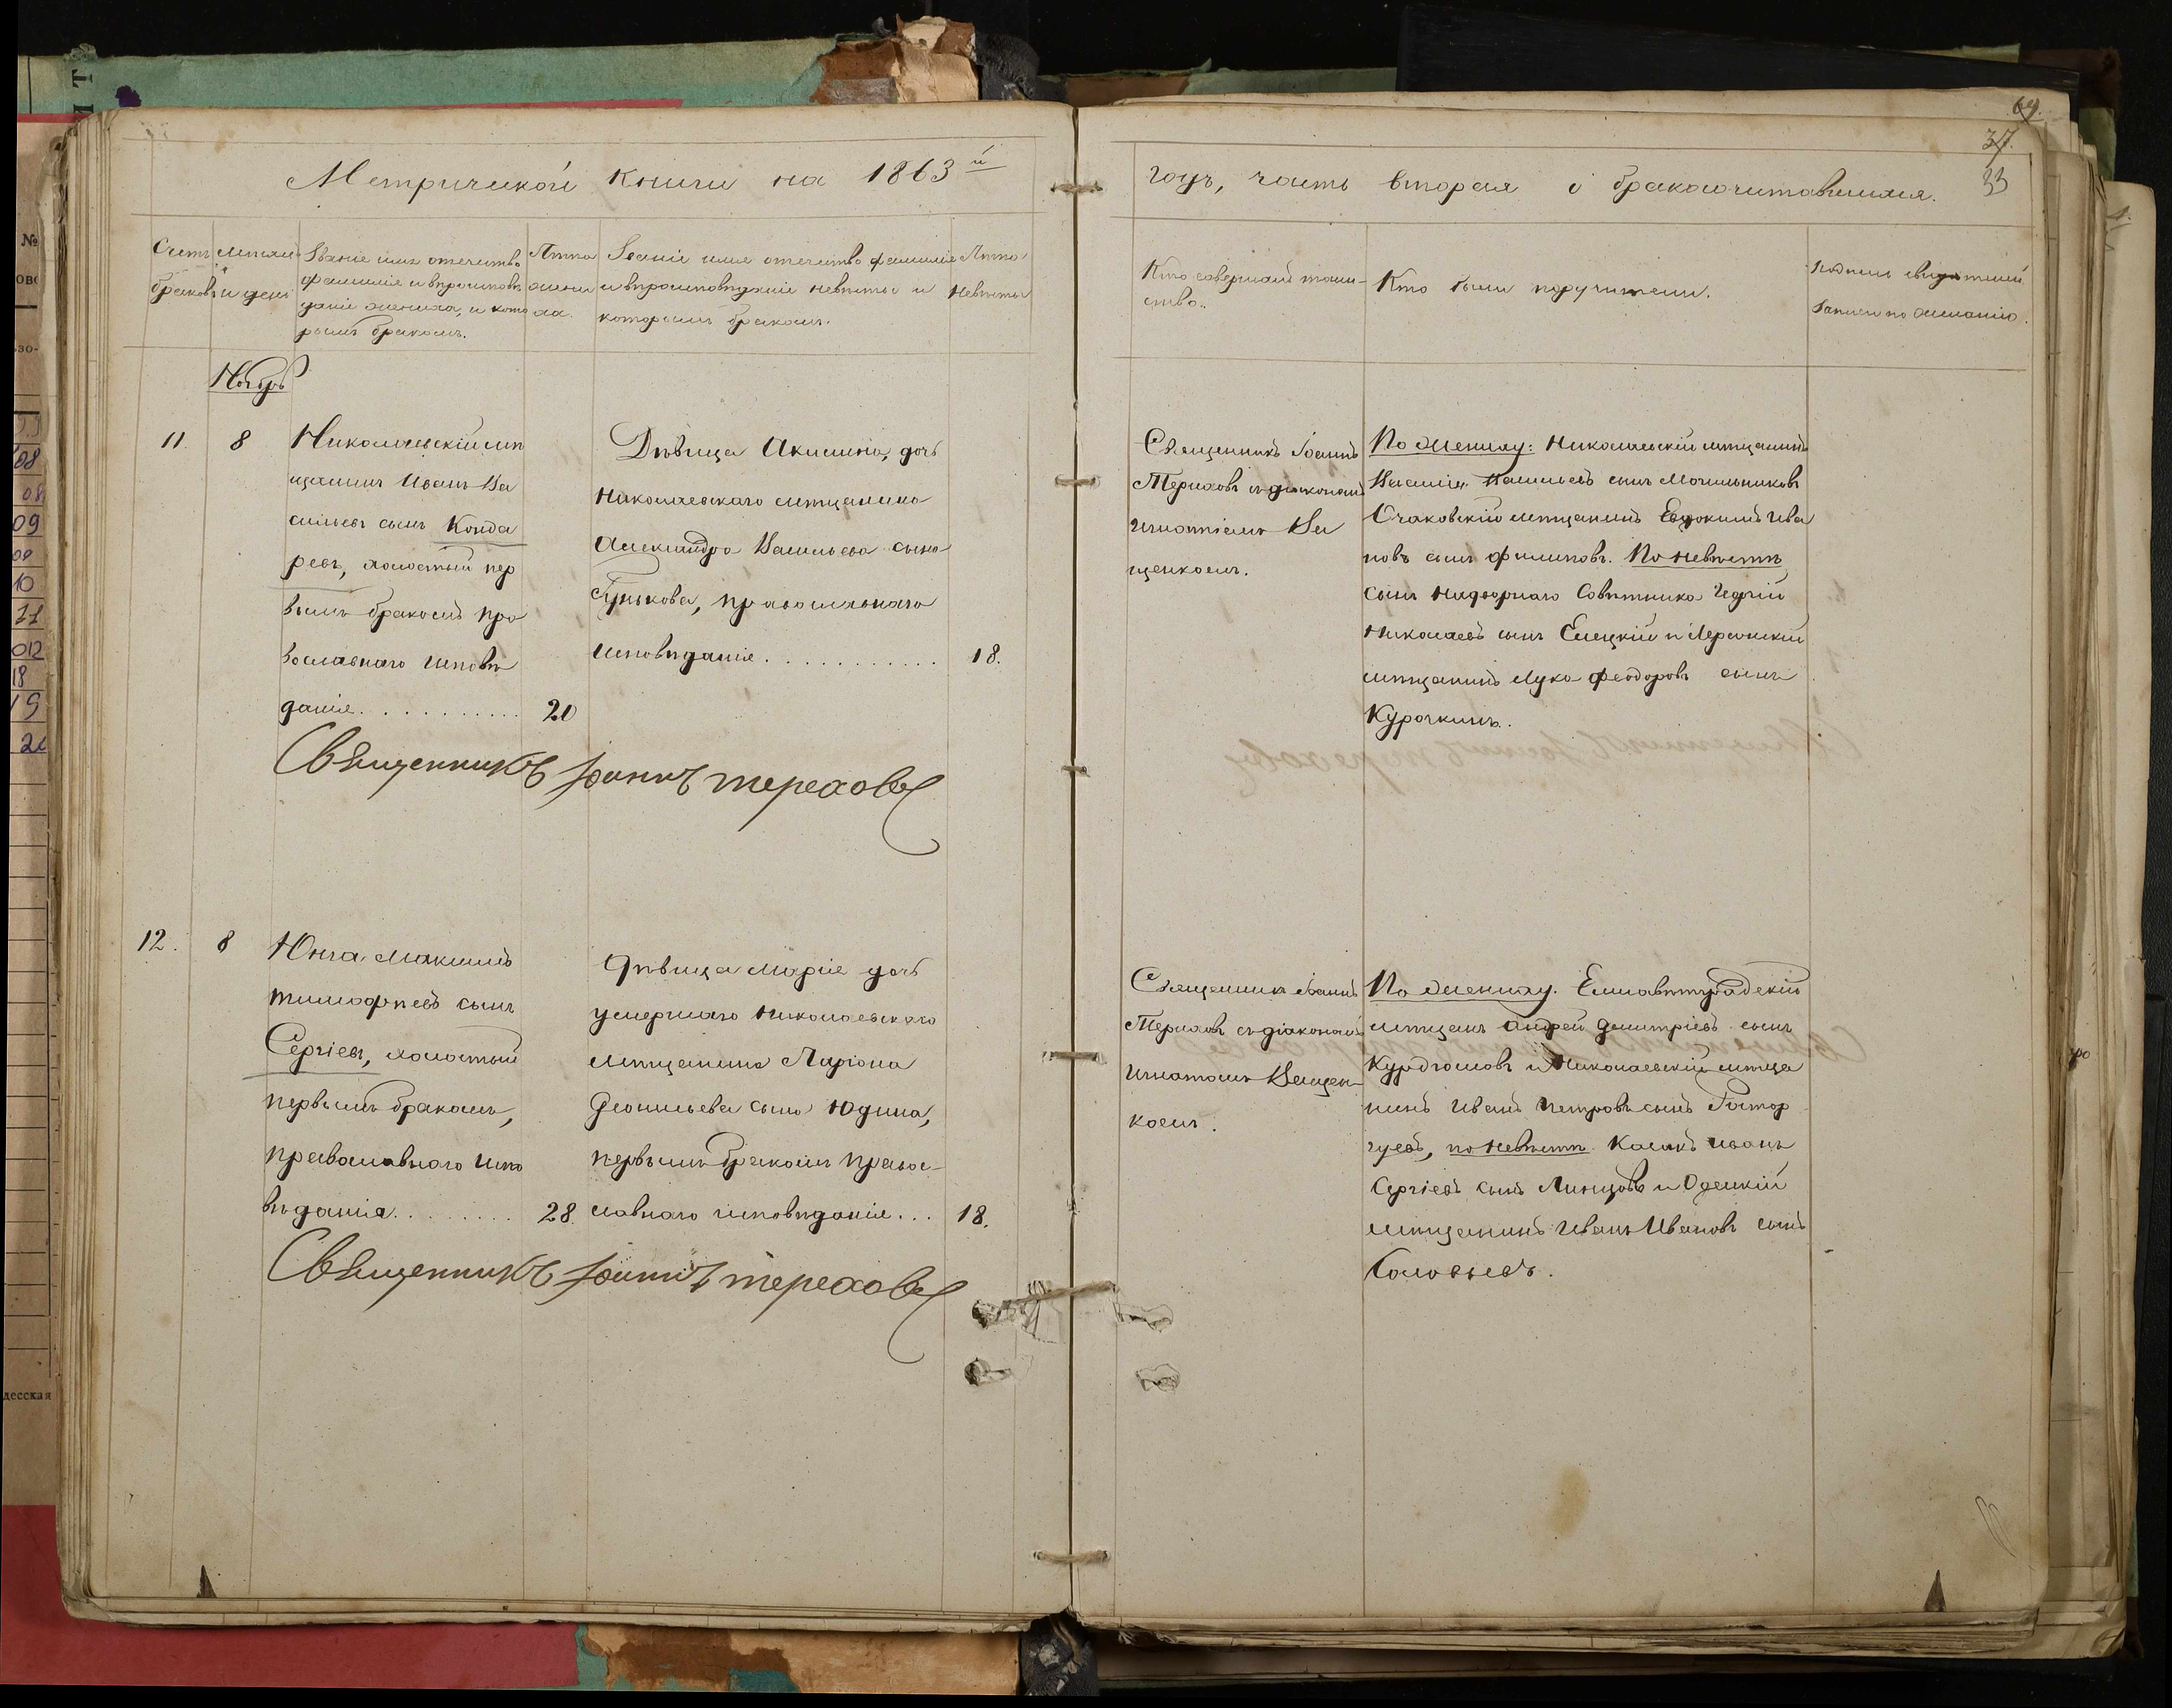 64.
37.
33
Метрической книги на 1863 й
годъ, часть вторая о бракосочитавшихся.
Счетъ
браковъ
Месяцъ
и день
Званіе имя отечество
фамилія и вероиспове
даніе жениха, и кото
рымъ бракомъ.
Лета
жени
ха.
Званіе имя отечество фамилія
и вероисповеданіе невесты и
которымъ бракомъ.
Лета
Невесты
Кто совершалъ таин-
ство.
Кто были поручители.
Подписи свидетелей
записи по желанію.
Ноябрь
11.
8
Николаевскій ме
щанинъ Иванъ Ва
сильевъ сынъ Конда
ревъ, холостый пер
вымъ бракомъ пра
вославнаго испове
данія . . . . . . . . . . .
20
Девица Акилина, дочь
Николаевскаго мещанина
Александра Васильева сына
Гунькова, православнаго
исповеданія . . . . . . . . . . . .
18.
Священникъ Іоаннъ Тереховъ
Священникъ Іоаннъ
Тереховъ съ діакономъ
Игнатіемъ Ва
щенкомъ.
По жениху: Николаевскій мещанинъ
Василій Васильевъ сынъ Мочильниковъ
Очаковскій мещанинъ Евдокимъ Ива
новъ сынъ Филиповъ. По невесте
сынъ Надворнаго Советника Георгій
Николаевъ сынъ Елецкій и Херсонскій
мещанинъ Лука Феодоровъ сынъ
Курочкинъ.
12.
8
Юнга Максимъ
Тимофеевъ сынъ
Сергіевъ, холостый
первымъ бракомъ,
православнаго испо
веданія . . . . . . . .
28.
Девица Марія дочь
умершаго Николаевскаго
мещанина Ларіона
Леонтьева сына Юдина,
первымъ бракомъ правос-
лавнаго исповеданія . . .
18.
Священникъ Іоаннъ Тереховъ
Священникъ Іоаннъ
Тереховъ съ діакономъ
Игнатомъ Ващен-
комъ.
По жениху. Елисаветградскій
мещанинъ Андрей Димитріевъ сынъ
и Николаевскій меща
нинъ Иванъ Петровъ сынъ Растор
гуевъ, по невесте Казакъ Иванъ
Сергіевъ сынъ и Одесскій
мещанинъ Иванъ Ивановъ сынъ
Соловьевъ.